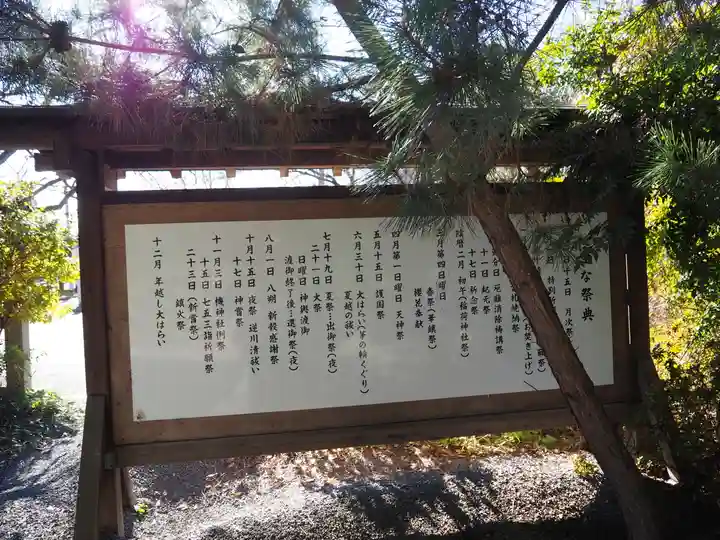 な祭典
十五日 月次祭
特別祈
厄難消除祷講祭
十一日 紀元祭
十七日 祈念祭
陰暦二月 初午(稲荷神社祭)
三月第四日曜日
春祭(華鎮祭)
櫻花奉献
四月第一日曜日 天神祭
五月十五日 護国祭
六月三十日 大はらい(茅の輪くぐり)
夏越の祓い
七月十九日 夏祭…出御祭(夜)
二十一日 大祭
日曜日 神輿渡御
渡御終了後…還御祭(夜)
八月一日 八朔 新穀感謝祭
十月十五日 夜祭 逆川清祓い
十七日 神嘗祭
十一月三日 機神社例祭
十五日 七五三詣祈願祭
二十三日(新嘗祭)
鎮火祭
十二月 年越し大はらい